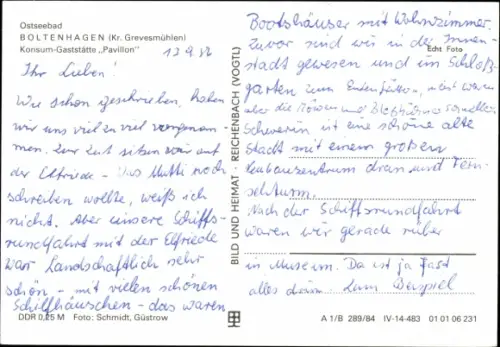 Ostseebad
BOLTENHAGEN (Kr. Grevesmühlen)
Konsum-Gaststätte „Pavillon"
13.9.86
Ihr Lieben!
Wie schon geschrieben, haben
wir uns viel zu viel vorgenom-
men. Zur Zeit sitzen wir auf
der Elfriede - Was Mutti noch
schreiben wollte, weiß ich
nicht. Aber unsere Schiffs-
rundfahrt mit der Elfriede
war Landschaftlich sehr
schön - mit vielen schönen
Schilfhäuschen - das waren
DDR 0,25 M Foto: Schmidt, Güstrow
BILD UND HEIMAT · REICHENBACH (VOGTL)
Bootshäuser mit Wohnzimmer.
Zuvor sind wir in der Innen-
Echt Foto
stadt gewesen und im Schloß-
garten zum Entenfüttern, nur waren
aber die Möwen und Bleßhühner schneller.
Schwerin ist eine schöne alte
Stadt mit einem großen
Neubauzentrum dran und Fern-
sehturm.
Nach der Schiffsrundfahrt
waren wir gerade rüber
in Museum. Da ist ja fast
alles drin. Zum Beispiel
A 1/B 289/84 IV-14-483 01 01 06 231